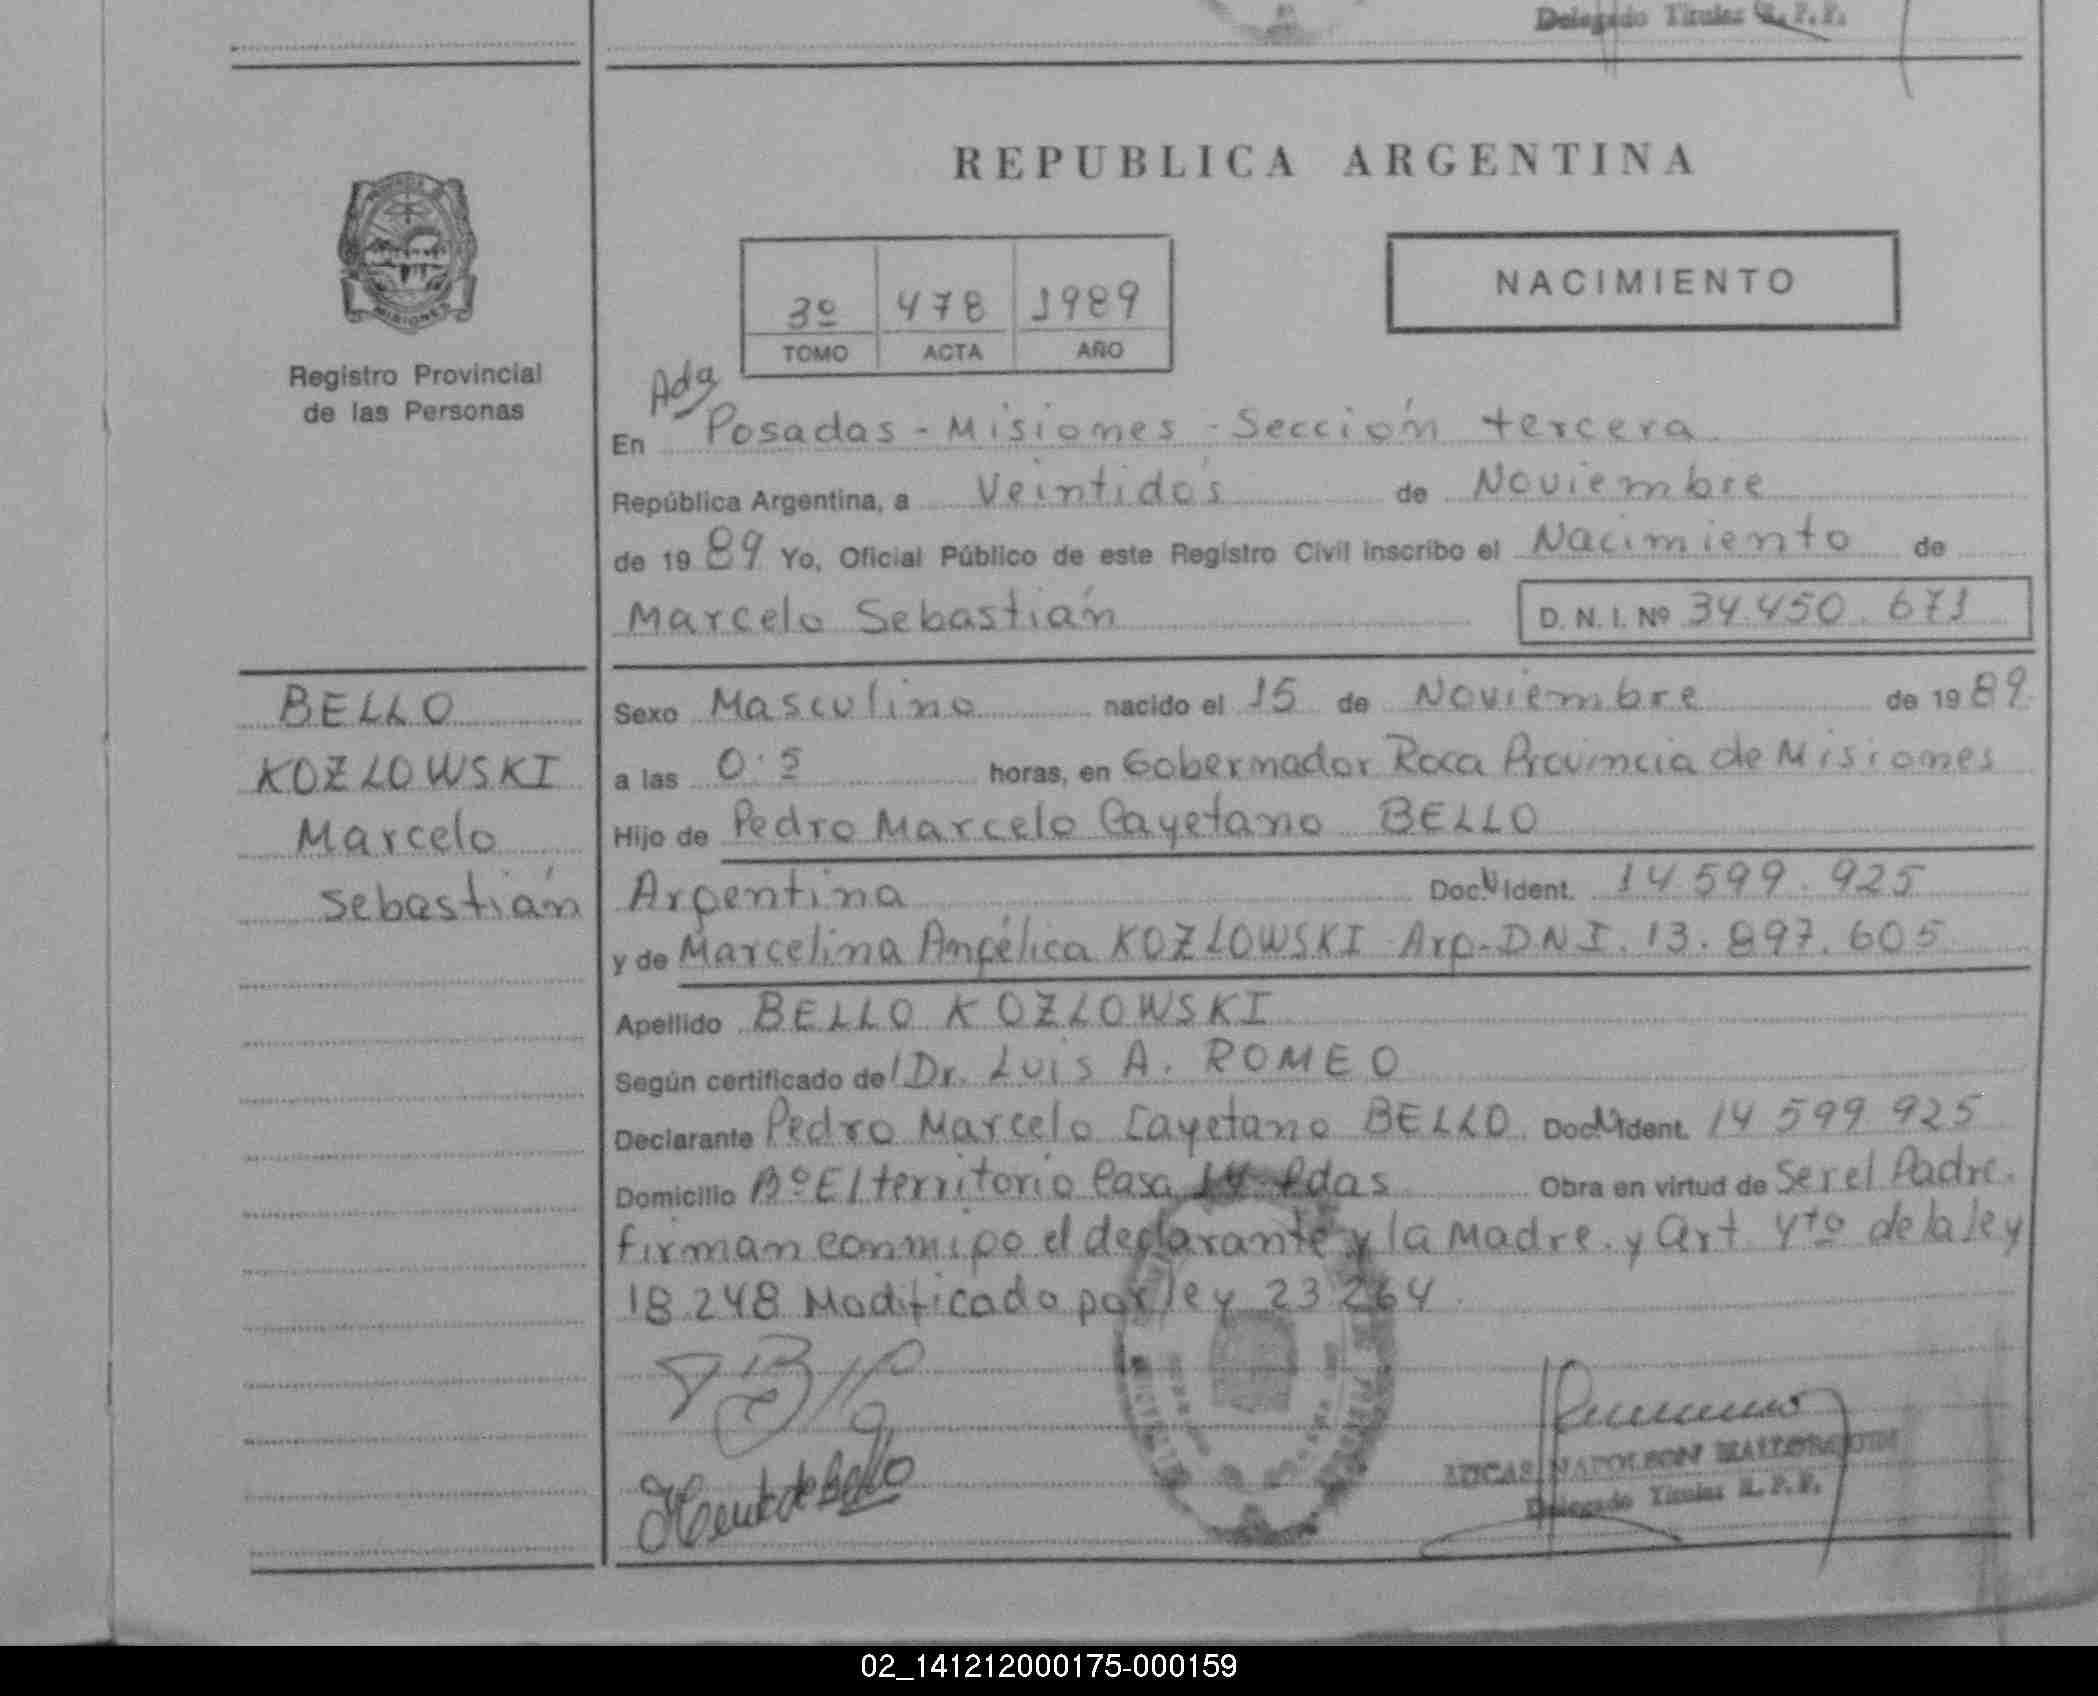 Delegado Titular R. P. P.
REPUBLICA ARGENTINA
MISIONES
Registro Provincial
de las Personas
3º 478 1989
TOMO ACTA AÑO
NACIMIENTO
Ada
En Posadas - Misiones - Sección tercera
República Argentina, a Veintidós de Noviembre
de 19 89 Yo, Oficial Público de este Registro Civil inscribo el Nacimiento de
Marcelo Sebastián D. N. I. Nº 34.450.671
BELLO
KOZLOWSKI
Marcelo
Sebastián
Sexo Masculino nacido el 15 de Noviembre de 19 89
a las 0:5 horas, en Gobernador Roca Provincia de Misiones
Hijo de Pedro Marcelo Cayetano BELLO
Argentina Doc. Ident. 14.599.925
y de Marcelina Angélica KOZLOWSKI Arg- DNI. 13.897.605
Apellido BELLO KOZLOWSKI
Según certificado del Dr. Luis A. ROMEO
Declarante Pedro Marcelo Cayetano BELLO Doc. Ident. 14 599 925
Domicilio Bº El territorio Casa 14 Pdas Obra en virtud de Ser el Padre.
firman conmigo el declarante y la Madre. y art 4to de la ley
18.248 Modificado por ley 23264.
de Bello
LUCAS NAPOLEON
Delegado Titular R. P. P.
02_141212000175-000159